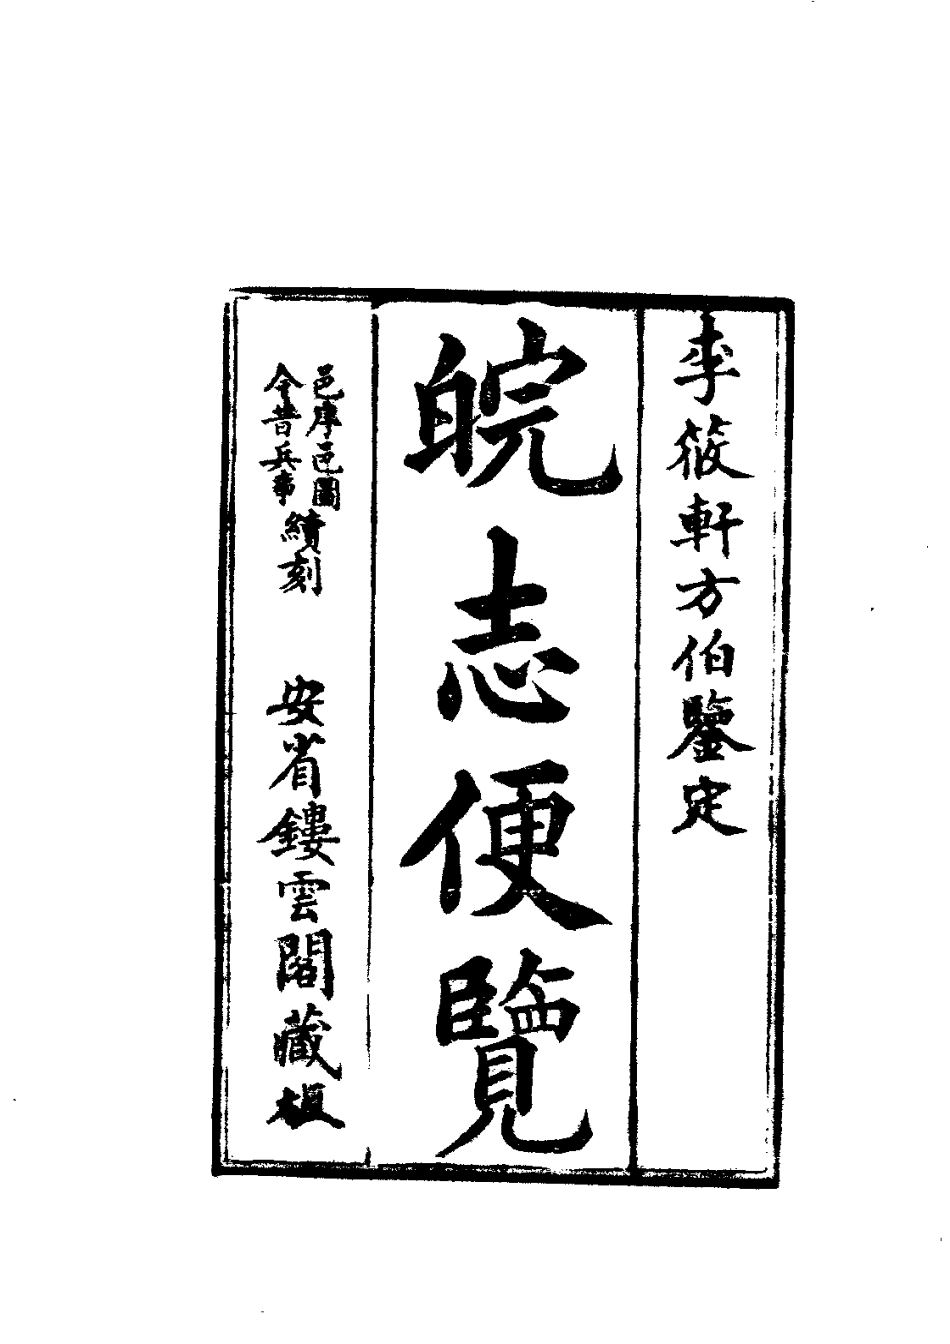 李筱軒方伯鑒定
皖志便覽
邑序邑圖
今昔兵事
續刻
安省鏤雲閣藏板